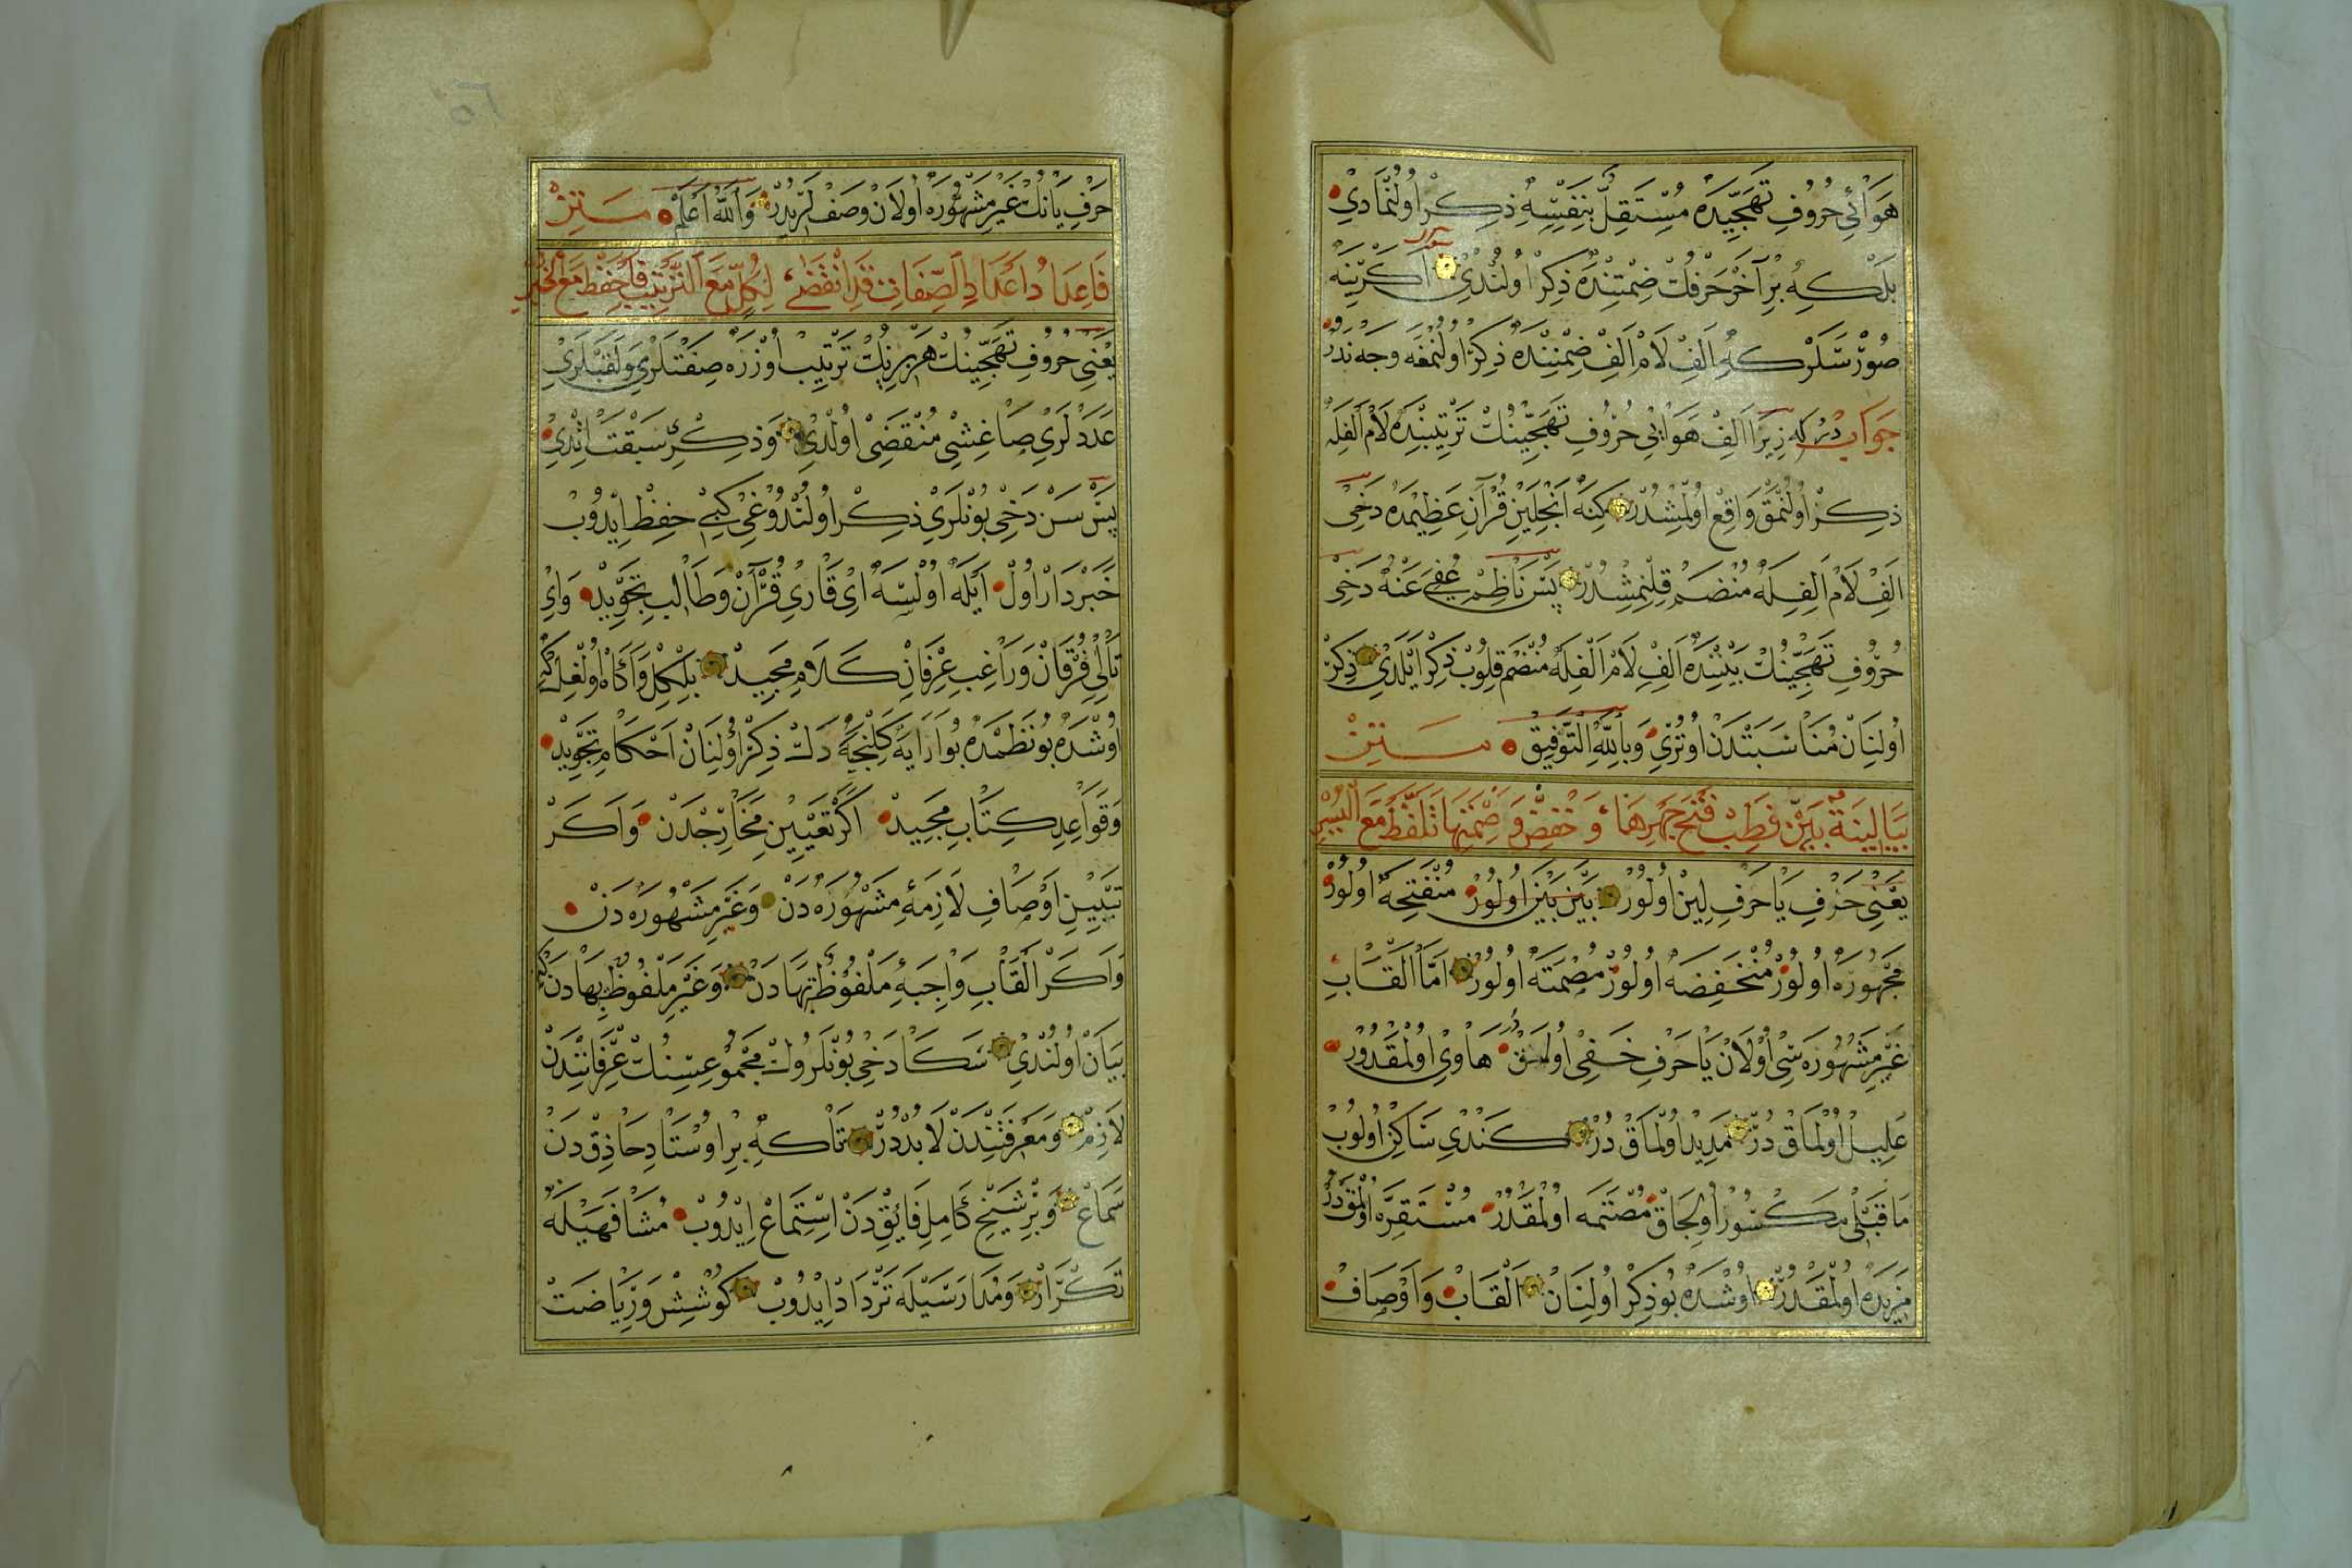 هَوَائِي حُرُوفِ تَهَجِّيدَه مُسْتَقِلّ بِنَفْسِهِ ذِكِرْ اُولُنْمَادِي
بَلْكِه بِرْ آخَرْ حَرْفُكْ ضِمْنِنْدَه ذِكِرْ اُولُنْدِي اَكَرْ يِنَه
سُؤَال
صُورَرْسَكْ كِه اَلِفْ لَامْ اَلِفْ ضِمْنِنْدَه ذِكِرْ اُولُنْمَغَه وَجْه نَدُرْ
جَوَابْ دُرْ كِه زِيرَا اَلِفْ هَوَائِي حُرُوفِ تَهَجِّينُكْ تَرْتِيبِنْدَه لَامْ اَلِفْلَه
ذِكِرْ اُولُنْمَقْ وَاقِعْ اُولْمِشْدُرْ كِنَه اَنْجِلَيِنْ قُرْآنِ عَظِيمْدَه دَخِي
اَلِفْ لَامْ اَلِفِلَه مُنْضَمْ قِلِنْمِشْدُرْ پَسْ نَاظِمْ عُفِيَ عَنْهُ دَخِي
حُرُوفِ تَهَجِّينُكْ بَيْنِنْدَه اَلِفْ لَامْ اَلِفِلَه مُنْضَمْ قِلُوبْ ذِكِرْ اَيْلَدِي ذِكِرْ
اُولِنَانْ مُنَاسَبَتْدَنْ اُوتُرِي وَبِاللهِ التَّوْفِيقْ مَتِنْ
بَيَا لِينَةٌ بَيِّنْ فَطِبْ فَتْحَ جَهْرِهَا وَخَفْضٌ وَصَمْتِهَا تَلَفَّظْ مَعَ الْيُسْرِ
يَعْنِي حَرْفِ يَا حَرْفِ لِينْ اُولُورْ بَيْنَ بَيْنَ اُولُورْ مُنْفَتِحَه اُولُورْ
مَجْهُورَه اُولُورْ مُنْخَفِضَه اُولُورْ مُصْمَتَه اُولُورْ اَمَّا اَلْقَابِ
غَيْرِ مَشْهُورَه سِي اُولَانْ يَا حَرْفِ خَفِي اُولْمَقْدُرْ هَاوِي اُولْمَقْدُرْ
عَلِيلْ اُولْمَاقْ دُرْ مَدِيدْ اُولْمَاقْ دُرْ كَنْدِي سَاكِنْ اُولُوبْ
مَا قَبْلِي مَكْسُورْ اُولِجَاقْ مُصْتَمَه اُولْمَقْدُرْ مُسْتَقِرَّه اُولْمَقْدُرْ
مَزِيدَه اُولْمَقْدُرْ اُوشْدَه بُو ذِكِرْ اُولِنَانْ اَلْقَابْ وَاَوْصَافْ
حَرْفِ يَانُكْ غَيْرِ مَشْهُورَه اُولَانْ وَصْفْلَرِيدُرْ وَاللهُ اَعْلَمْ مَتِنْ
فَاَعِدَادُ اَعْدَادِ الصِّفَاتِ قَدِ انْقَضَى لِكُلٍّ مَعَ التَّرْتِيبِ فَاحْفَظْ مَعَ الْخُبْرِ
يَعْنِي حُرُوفِ تَهَجِّينُكْ هَرْ بِرِينُكْ تَرْتِيبْ اُوزْرَه صِفَتْلَرِي وَلَقَبْلَرِي
عَدَدْلَرِي صَاغِشِي مُنْقَضِي اُولْدِي وَذِكِرْ سَبْقَتْ اِتْدِي
پَسْ سَنْ دَخِي بُونْلَرِي ذِكِرْ اُولُنْدُوغِي كِبِي حِفِظْ اِيدُوبْ
خَبَرْدَارْ اُولْ اَيْلَه اُولْسَه اَيْ قَارِئِ قُرْآنْ وَطَالِبِ تَجْوِيدْ وَاَيْ
تَالِي فُرْقَانْ وَرَاغِبِ عِرْفَانِ كَلَامِ مَجِيدْ بِلْكِلْ وَآكَاهْ اُولْغِلْ كِه
اُوشْدَه بُو نَظْمْدَه بُو اَرَايَه كَلِنْجَه دَكْ ذِكِرْ اُولِنَانْ اَحْكَامِ تَجْوِيدْ
وَقَوَاعِدِ كِتَابِ مَجِيدْ اَكَرْ تَعْيِينِ مَخَارِجْدَنْ وَاَكَرْ
تَبْيِينِ اَوْصَافِ لَازِمَهءِ مَشْهُورَه دَنْ وَغَيْرِ مَشْهُورَه دَنْ
وَاَكَرْ اَلْقَابِ وَاجِبَهءِ مَلْفُوظٌ بِهَادَنْ وَغَيْرِ مَلْفُوظٌ بِهَادَنْ كِه
بَيَانْ اُولُنْدِي سَكَا دَخِي بُونْلَرُوكْ مَجْمُوعِسِنُكْ عِرْفَانِنْدَنْ
لَازِمْ وَمَعْرِفَتِنْدَنْ لَابُدْدُرْ تَاكِه بِرْ اُوسْتَادِ حَاذِقْ دَنْ
سَمَاعْ وَبِرْ شَيْخِ كَامِلِ فَائِقْ دَنْ اِسْتِمَاعْ اِيدُوبْ مُشَافَهَيْلَه
تَكْرَارْ وَمُدَارَسَيْلَه تَرْدَادْ اِيدُوبْ كُوشِشْ وَرِيَاضَتْ